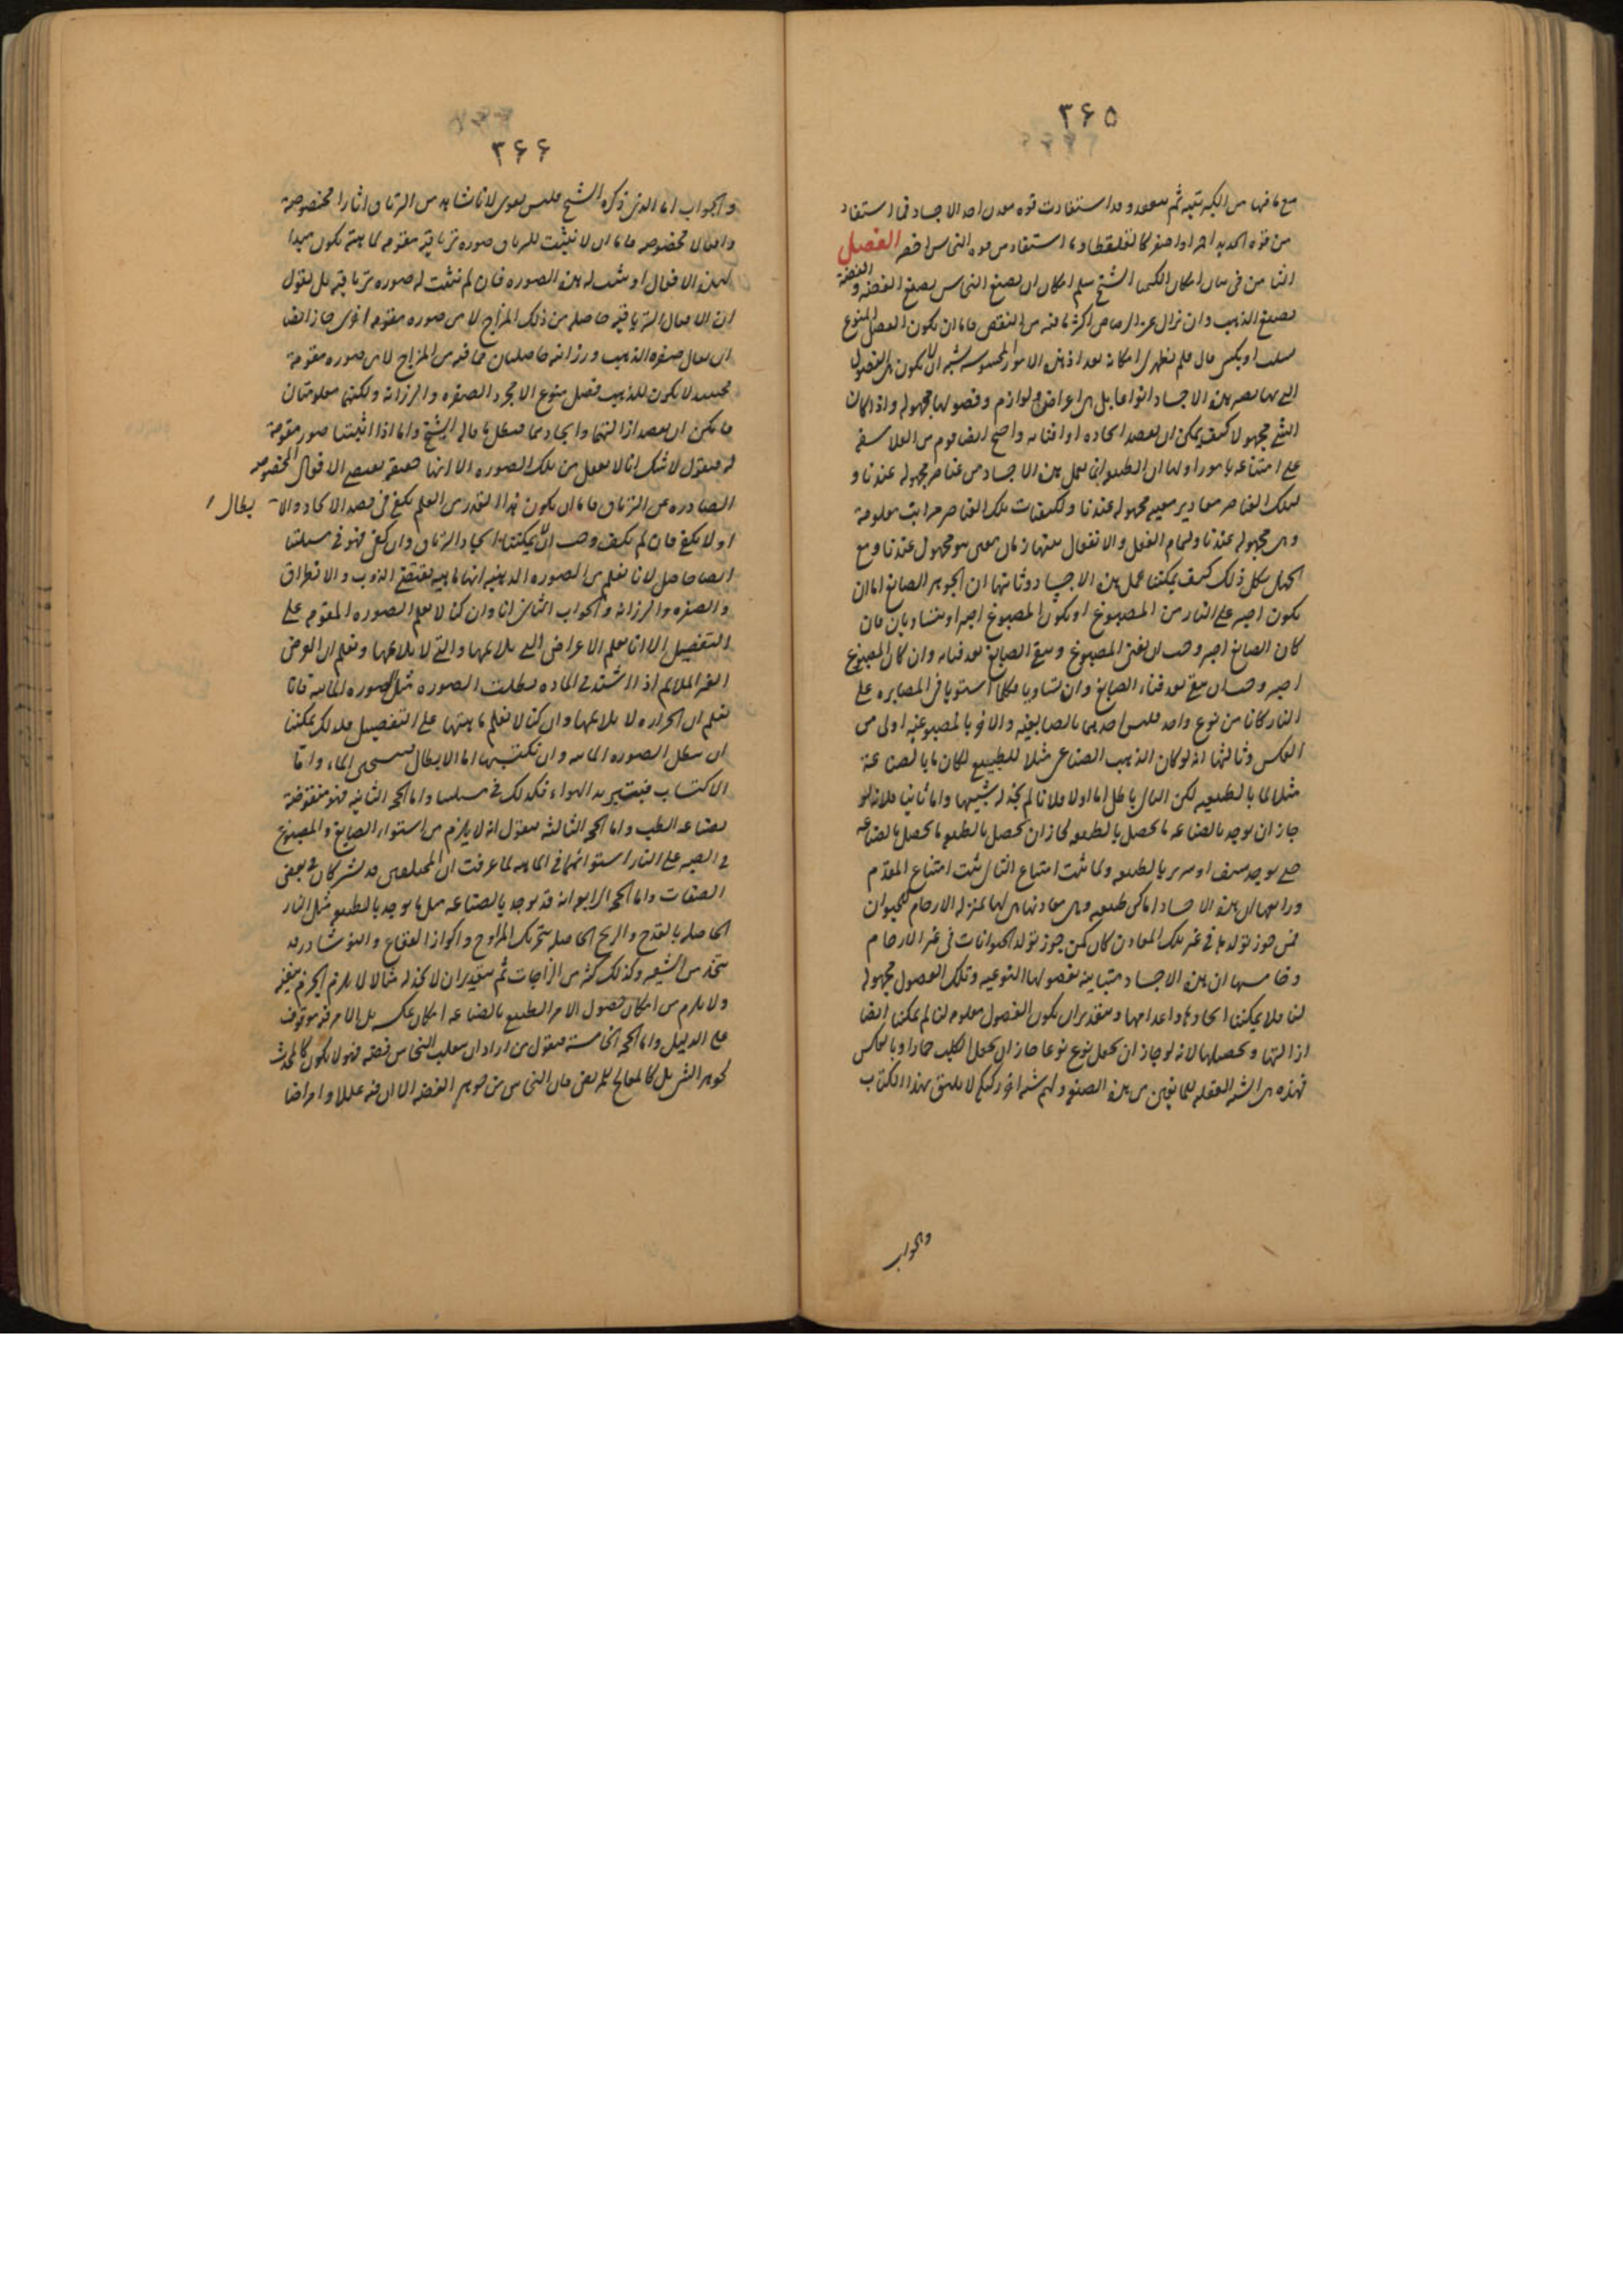 ٣۶۵
مع ما فيها من الكبريتيه ثم ينعقد وقد استفادت قوه معدن احد الاجساد فما استفاد
من قوه الحديد احمر او اصفر كالقلقطار وما استفاد من قوه النحاس اخضر الفصل
الثامن فى بيان امكان الكيميا الشيخ سلم امكان ان يصبغ النحاس بصبغ الفضه والفضة
بصبغ الذهب وان يزال عن الرصاص اكثر ما فيه من النقص فاما ان يكون الفصل المنوع
يسلب او يكسى قال فلم يظهر لى امكانه بعد اذ هذه الامور المحسوسه يشبه ان لا يكون هى الفصول
التى بها يصير هذه الاجساد انواعا بل هى اعراض ولوازم وفصولها مجهوله واذا كان
الشئ مجهولا كيف يمكن ان يقصد ايجاده او افناه واحتج ايضا قوم من الفلاسفه
على امتناعه بامور اولها ان الطبيعه انما يعمل هذه الاجساد من عناصر مجهوله عندنا و
لتلك العناصر مقادير معينه مجهوله عندنا ولكيفيات تلك العناصر مراتب معلومة
وهى مجهوله عندنا ولتمام الفعل والانفعال بينها زمان معين هو مجهول عندنا ومع
الجهل بكل ذلك كيف يمكننا عمل هذه الاجساد وثانيها ان الجوهر الصابغ اما ان
يكون اصبر على النار من المصبوغ او يكون المصبوغ اصبر او يتساويان فان
كان الصابغ اصبر وجب ان يفنى المصبوغ ويبقى الصابغ بعد فنائه وان كان المصبوغ
اصبر وجب ان يبقى بعد فناء الصابغ وان تساويا فكلما استويا فى المصابره على
النار كانا من نوع واحد فليس احدهما بالصابغيه والاخر بالمصبوغيه اولى من
العكس وثالثها انه لو كان الذهب الصناعى مثلا للطبيعى لكان ما بالصناعة
مثلا لما بالطبيعه لكن التالى باطل اما اولا فلانا لم نجد له شبيها واما ثانيا فلانه لو
جاز ان يوجد بالصناعه ما يحصل بالطبيعه لجاز ان يحصل بالطبيعه ما يحصل بالصناعه
حتى يوجد سيف او سرير بالطبيعه ولما ثبت امتناع التالى ثبت امتناع المقدم
ورابعها ان هذه الاجساد اماكن طبيعيه وهى معادنها هى لها بمنزله الارحام للحيوان
فمن جوز تولدها فى غير تلك المعادن كان كمن جوز تولد الحيوانات فى غير الارحام
وخامسها ان هذه الاجساد متباينه بفصولها النوعيه وتلك الفصول مجهوله
لنا فلا يمكننا ايجادها واعدامها وبتقدير ان يكون الفصول معلومه لنا لم يمكننا ايضا
ازالتها وتحصيلها لانه لو جاز ان يجعل نوع نوعا جاز ان يجعل الكلب حمارا وبالعكس
فهذه هى الشبه العقليه للمانعين من هذه الصنعه ولهم شبه اخر ركيكه لا يليق بهذا الكتاب
والجواب
٣۶۶
والجواب اما الذى ذكره الشيخ فليس بقوى لانا نشاهد من الترياق اثارا مخصوصة
وافعالا مخصوصه فاما ان لا نيثبت للترياق صوره ترياقيه مقومه لماهيته يكون مبدا
لهذه الافعال او نثبت له هذه الصوره فان لم نثبت له صوره ترياقيه بل نقول
ان الافعال الترياقيه حاصله من ذلك المزاج لا من صوره مقومه اخرى جاز ايضا
ان يقال صفره الذهب ورزانته حاصلتان مما فيه من المزاج لا من صوره مقومة
فحينئذ لا يكون للذهب فصل منوع الا مجرد الصفره والرزانه ولكنهما معلومتان
فامكن ان يقصد ازالتهما وايجادهما فبطل ما قاله الشيخ واما اذا اثبتنا صور مقومة
له فنقول لا شك انا لا نعقل من تلك الصوره الا انها حقيقه تقتضى الافعال المخصوصه
الصادره عن الترياق فاما ان يكون هذا القدر من العلم يكفى فى قصد الايجاد والابطال
او لا يكفى فان لم يكف وجب ان لا يمكننا ايجاد الترياق وان كفى فهو فى مسئلتنا
ايضا حاصل لانا نعلم من الصوره الذهبيه انها ماهيه تقتضى الذوب والانطراق
والصفره والرزانه والجواب الثانى انا وان كنا لا نعلم الصوره المقومه على
التفصيل الا انا نعلم الاعراض التى يلائمها والتى لا يلائمها ونعلم ان العرض
الغير الملائم اذا اشتد فى الماده بطلت الصوره مثل الصوره المائيه فانا
نعلم ان الحراره لا يلائمها وان كنا لا نعلم ماهيتها على التفصيل فلذلك يمكننا
ان نبطل الصوره المائيه وان نكتسبها اما الابطال فبتسخين الماء واما
الاكتساب فبتبريد الهواء فكذلك فى مسئلتنا واما الحجه الثانيه فهو منقوضة
بصناعه الطب واما الحجه الثالثه فنقول انه لا يلزم من استواء الصابغ والمصبوغ
فى الصبر على النار استوائهما فى الماهيه لما عرفت ان المختلفين قد يشتركان فى بعض
الصفات واما الحجه الرابعه انه قد يوجد بالصناعه مثل ما يوجد بالطبيعه مثل النار
الحاصله بالقدح والريح الحاصله بتحريك المراوح واكواز الفقاع والنوشادر قد
يتخذ من الشعر وكذلك كثير من الزاجات ثم بتقدير ان لا نجد له مثالا لا يلزم الجزم بنفيه
ولا يلزم من امكان حصول الامر الطبيعى بالصناعه امكان عكسه بل الامر فيه موقوف
على الدليل واما الحجه الخامسه فنقول من اراد ان يقلب النحاس فضه فهو لا يكون كالمحدث
لجوهر الشئ بل كالمعالج للمريض فان النحاس من جوهر الفضه الا ان فيه عللا وامراضا